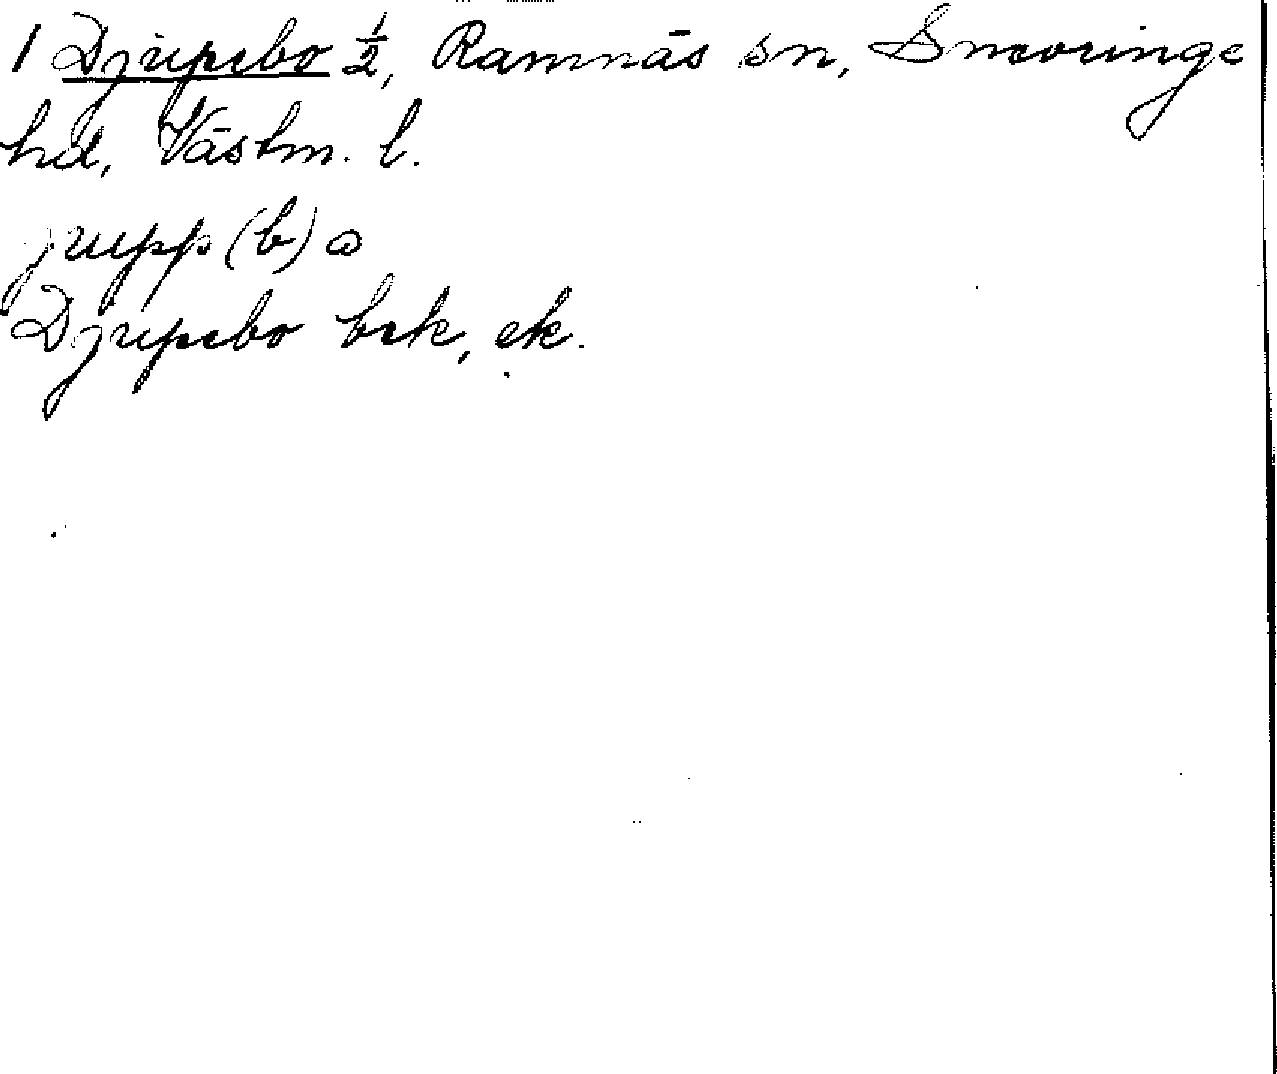 1 Djupebo ½, Ramnäs sn, Snevringe
hd, Västm. l.
jupp(b)o
Djupebo bek, ek.